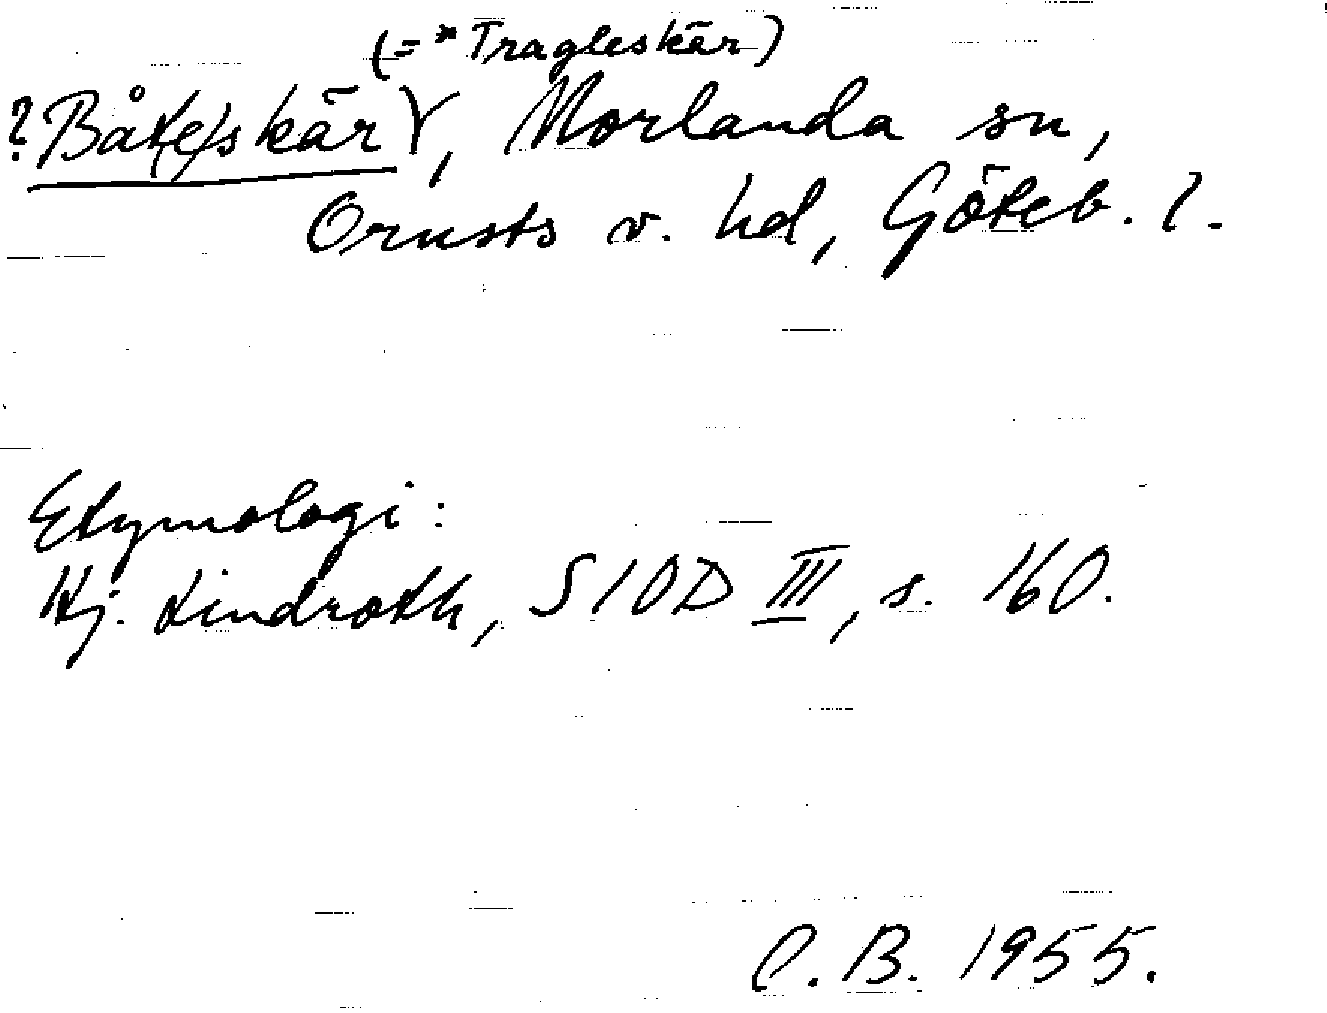 (= *Tragleskär)
?Båt(e)skär, Morlanda sn,
Orusts v. hd, Göteb. l.
Etymologi:
Hj. Lindroth, SIOD III, s. 160.
C. B. 1955.